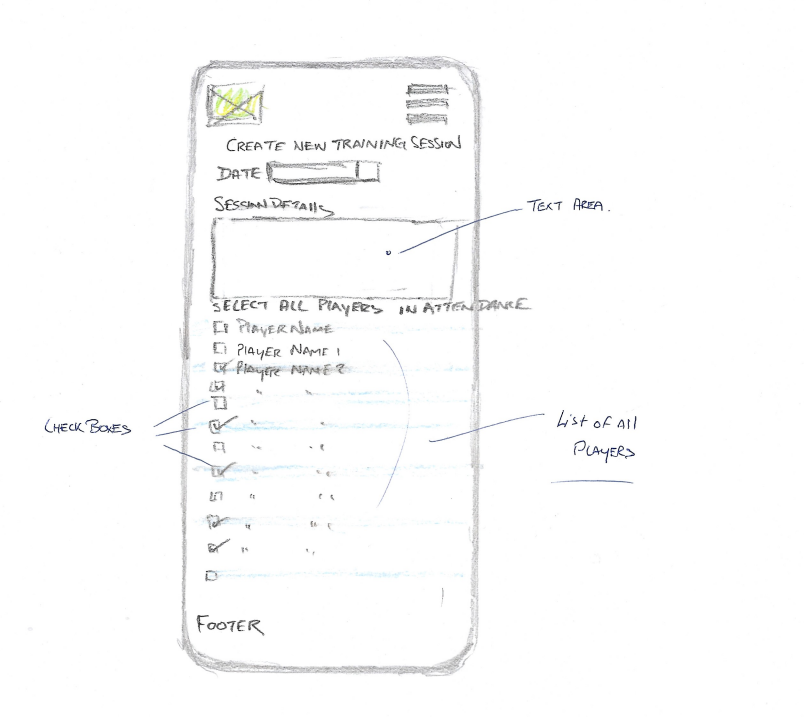 CREATE NEW TRAINING SESSION
DATE
SESSION DETAILS
TEXT AREA.
SELECT ALL PLAYERS IN ATTENDANCE
PLAYER NAME
PLAYER NAME 1
PLAYER NAME 2
" "
CHECK BOXES
" "
" "
" "
" "
" "
" "
LIST OF All
PLAYERS
FOOTER